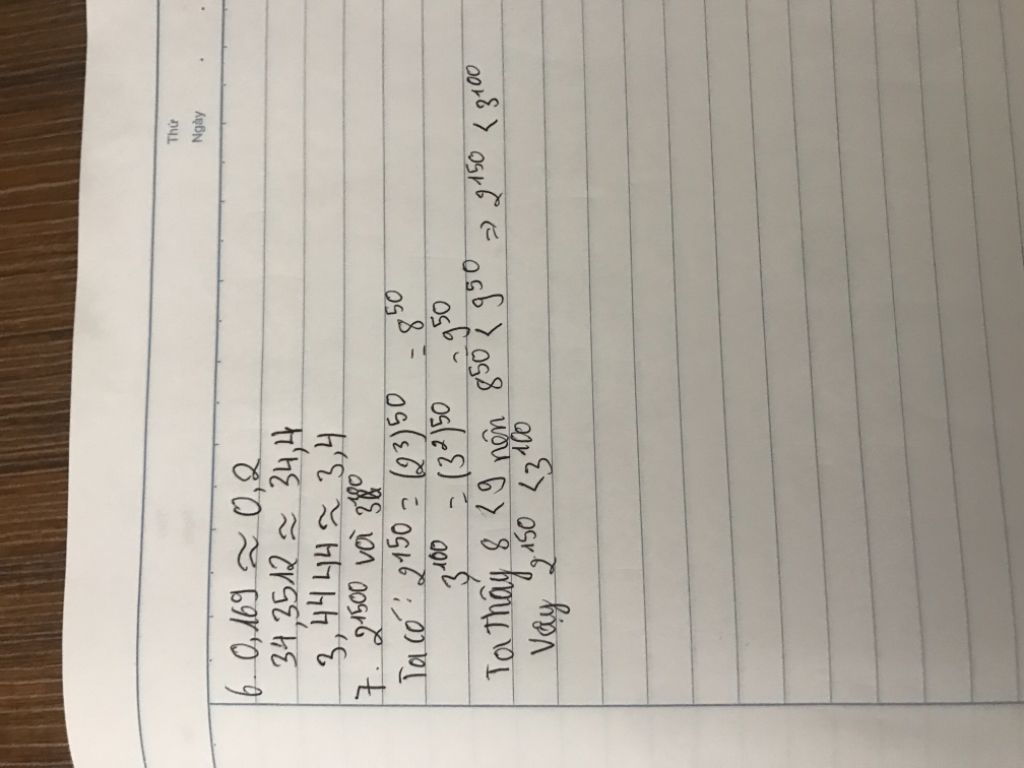 Thứ
Ngày
6. 0,169 ≈ 0,2
34,3512 ≈ 34,4
3,4444 ≈ 3,4
7. 2¹⁵⁰⁰ và 3¹⁰⁰
Ta có: 2¹⁵⁰ = (2³)⁵⁰ = 8⁵⁰
3¹⁰⁰ = (3²)⁵⁰ = 9⁵⁰
Ta thấy 8 < 9 nên 8⁵⁰ < 9⁵⁰ => 2¹⁵⁰ < 3¹⁰⁰
Vậy 2¹⁵⁰ < 3¹⁰⁰